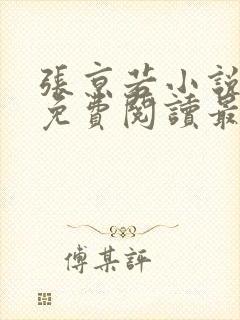 張京若小說
免費閱讀最
傅某評